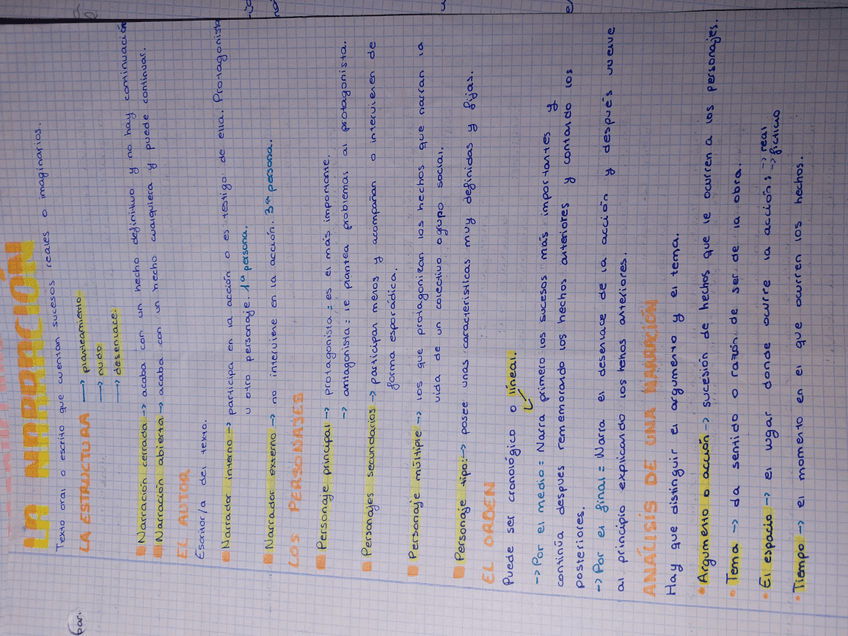 LA NARRACIÓN
Texto oral o escrito que cuentan sucesos reales o imaginarios.
LA ESTRUCTURA → planteamiento.
→ nudo
→ desenlace.
Narración cerrada → acaba con un hecho definitivo y no hay continuación
Narración abierta → acaba con un hecho cualquiera y puede continuar.
EL AUTOR
Escritor/a del texto.
Narrador interno → participa en la acción o es testigo de ella. Protagonista
u otro personaje. 1ª persona.
Narrador externo → no interviene en la acción. 3ª persona.
LOS PERSONAJES
Personaje principal → protagonista: es el más importante.
→ antagonista: le plantea problemas al protagonista.
Personajes secundarios → participan menos y acompañan o intervienen de
forma esporádica.
Personaje múltiple → los que protagonizan los hechos que narran la
vida de un colectivo o grupo social.
Personaje tipo: → posee unas características muy definidas y fijas.
EL ORDEN
Puede ser cronológico o lineal.
→ Por el medio = Narra primero los sucesos más importantes y
continúa después rememorando los hechos anteriores y contando los
posteriores.
→ Por el final = Narra el desenlace de la acción y después vuelve
al principio explicando los anteriores.
ANÁLISIS DE UNA NARRACIÓN
Hay que distinguir el argumento y el tema.
• Argumento o acción → sucesión de hechos que le ocurren a los personajes.
• Tema → da sentido o razón de ser de la obra.
• El espacio → el lugar donde ocurre la acción: → real
→ ficticio
• Tiempo → el momento en el que ocurren los hechos.